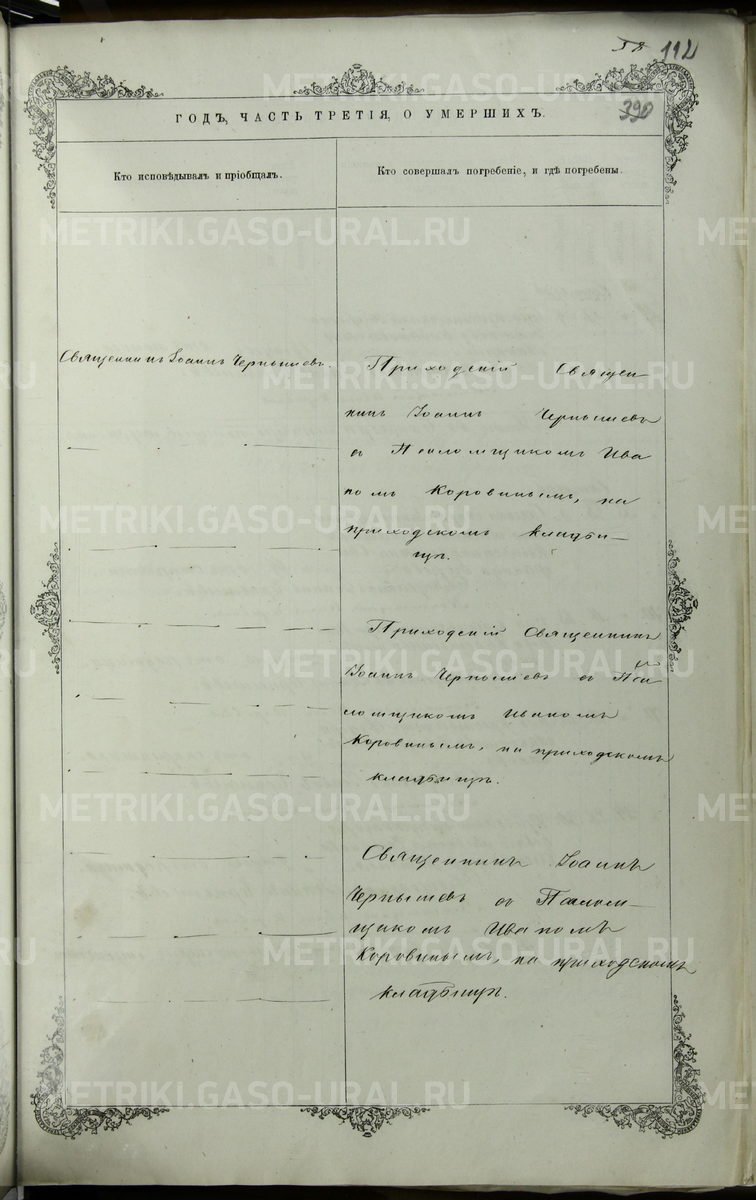 112
390
ГОДЪ, ЧАСТЬ ТРЕТІЯ, О УМЕРШИХЪ.
Кто исповѣдывалъ и пріобщалъ.
Кто совершалъ погребеніе, и гдѣ погребены.
Священникъ Іоаннъ Чернышевъ.
Приходскій Священ-
никъ Іоаннъ Чернышевъ
съ Псаломщикомъ Ива
номъ Коровинымъ, на
приходскомъ кладби-
щѣ.
Приходскій Священникъ
Іоаннъ Чернышевъ съ Пса
ломщикомъ Иваномъ
Коровинымъ, на приходскомъ
кладбищѣ.
Священникъ Іоаннъ
Чернышевъ съ Псалом-
щикомъ Иваномъ
Коровинымъ, на приходскомъ
кладбищѣ.
METRIKI.GASO-URAL.RU